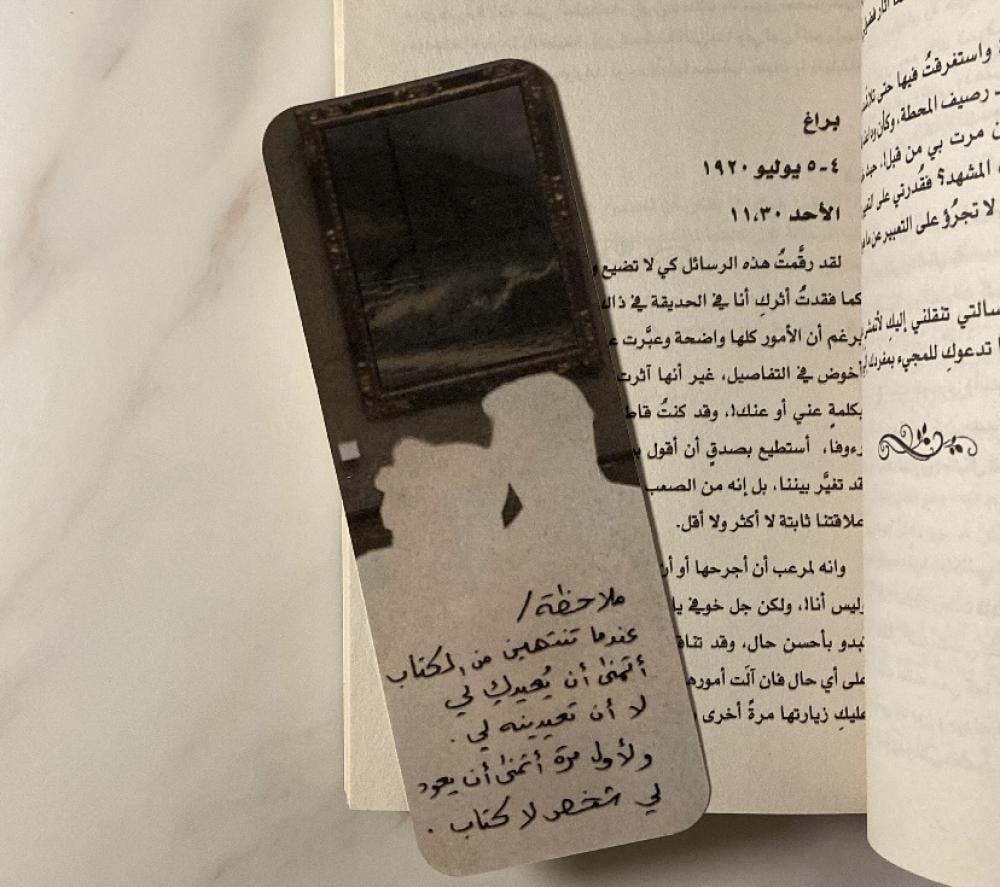 براغ
٤-٥ يوليو ١٩٢٠
الأحد ١١،٣٠
لقد رقَّمتُ هذه الرسائل كي لا تضيع و
كما فقدتُ أثركِ أنا في الحديقة في ذال
برغم أن الأمور كلها واضحة وعبَّرت ع
أخوض في التفاصيل، غير أنها آثرت
بكلمةٍ عني أو عنك!، وقد كنتُ قاط
رءوفا، أستطيع بصدقٍ أن أقول ب
قد تغيَّر بيننا، بل إنه من الصعب
علاقتنا ثابتة لا أكثر ولا أقل.
وانه لمرعب أن أجرحها أو أن
وليس أنا!، ولكن جل خوفي يا
تبدو بأحسن حال، وقد تناق
على أي حال فان آلت أموره
عليكِ زيارتها مرةً أخرى
ملاحظة /
عندما تنتهين من الكتاب
أتمنى أن يُعيدكِ لي
لا أن تعيدينه لي .
ولأول مرة أتمنى أن يعود
لي شخص لا كتاب .
واستغرقتُ فيها حتى
رصيف المحطة، وكأن
مرت بي من قبل!،
المشهد؟ فقُدرتي على
لا تجرُؤ على التعبير عن
سالتي تنقلني إليكِ
تدعوكِ للمجيء بمفردك